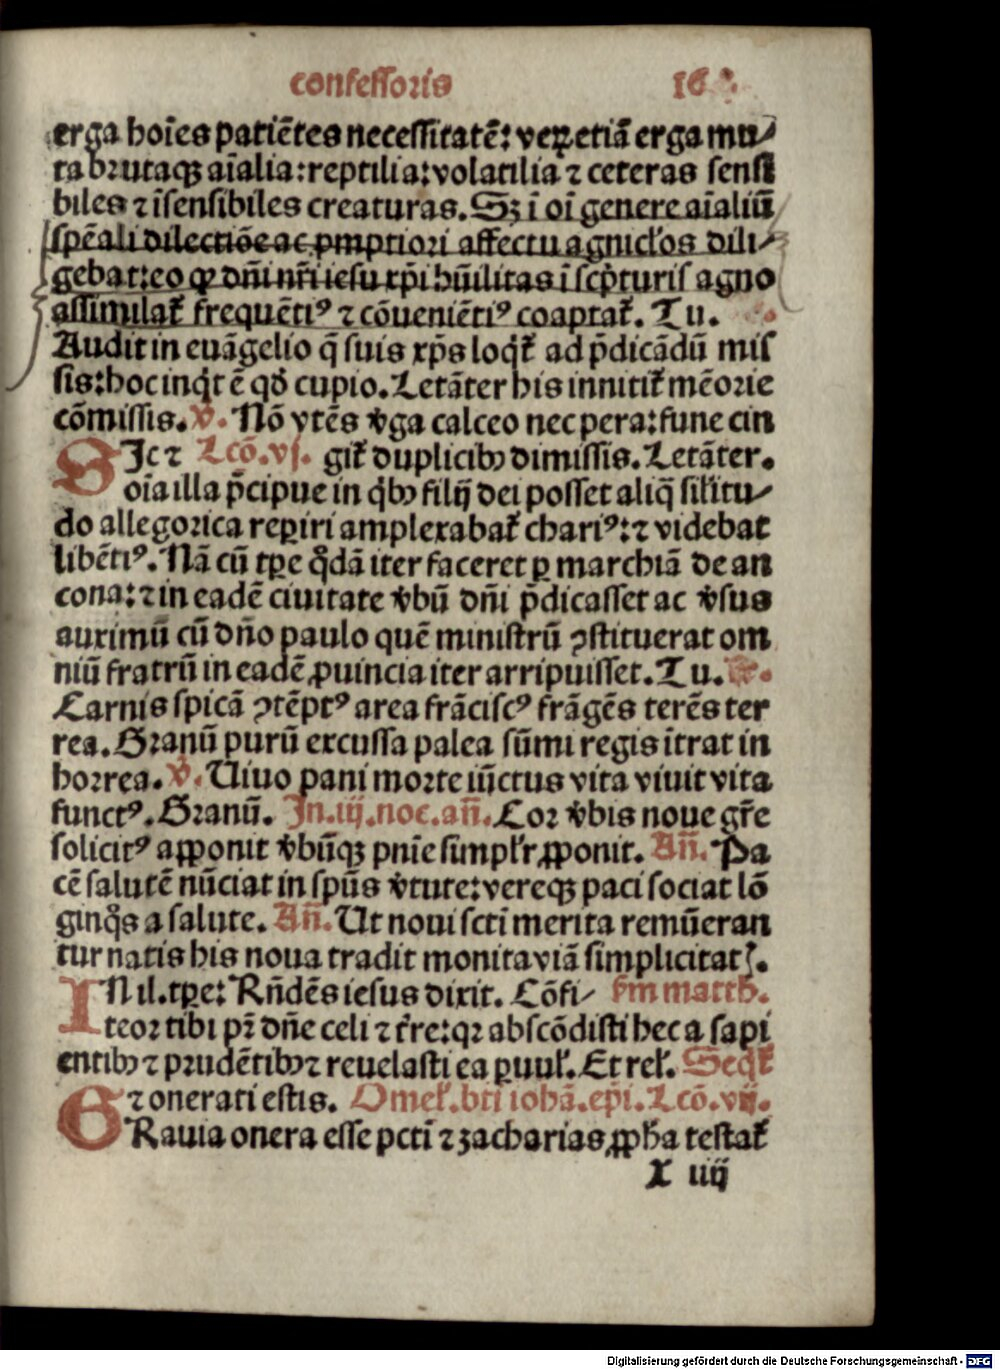 confessoris 16
erga hoīes patiētes necessitatē: veꝝ etiā erga mu⸗
ta brutaqꝫ aīalia: reptilia: volatilia ⁊ ceteras sensi
biles ⁊ īsensibiles creaturas. Sꝫ ī oī genere aīaliū
spēali dilectiōe ac ꝓmptiori affectu agnicƚos dili⸗
gebat: eo ꝙ dn̄i nr̄i iesu xp̄i hūilitas ī scṗturis agno
assimilat᷑ frequētiꝰ ⁊ cōueniētiꝰ coaptat᷑. Tu.
Audit in euāgelio q̄ suis xp̄s loqͥt᷑ ad p̄dicādū mis
sis: hoc inqͥt ē qd̛ cupio. Letāter his innitit᷑ mēorie
cōmissis. v̛. Nō vtēs v̛ga calceo nec pera: fune cin
SIc ⁊ Lcō. vj. git᷑ duplicibꝫ dimissis. Letāter.
oīa illa p̄cipue in qͥbꝫ filij dei posset aliq̄ siƚitu⸗
do allegorica reꝑiri amplexabat᷑ chariꝰ: ⁊ videbat
libētiꝰ. Nā cū tꝑe qͦdā iter faceret ꝑ marchiā de an
cona: ⁊ in eadē ciuitate v̛bū dn̄i p̄dicasset ac v̛sus
auximū cū dn̄o paulo quē ministrū ꝯstituerat om
niū fratrū in eadē ꝓuincia iter arripuisset. Tu. R̄.
Carnis spicā ꝯtēptꝰ area frāciscꝰ frāgēs terēs ter
rea. Granū purū excussa palea sūmi regis ītrat in
horrea. v̛. Uiuo pani morte iūctus vita viuit vita
functꝰ. Granū. In .iij. noc. añ. Cor v̛bis noue gr̄e
solicitꝰ apponit v̛būqꝫ pnīe simpƚr ꝓponit. Añ. Pa
cē salutē nūciat in spūs v̛tute: vereqꝫ paci sociat lō
ginqͦs a salute. Añ. Ut noui scti merita remūeran
tur natis his noua tradit monita viā simplicitatꝭ.
IN il. tꝑe: Rn̄dēs iesus dixit. Cōfi⸗ Sm matth.
teor tibi pr̄ dn̄e celi ⁊ tr̄e: qꝛ abscōdisti hec a sapi
entibꝫ ⁊ prudētibꝫ ⁊ reuelasti ea ꝑuuƚ. Et reƚ. Seqt᷑
G⁊ onerati estis. Omeƚ. bti iohā. ep̄i. Lcō. vij.
Rauia onera esse pctī ⁊ zacharias ꝓpha testat᷑
X iiij
Digitalisierung gefördert durch die Deutsche Forschungsgemeinschaft - DFG